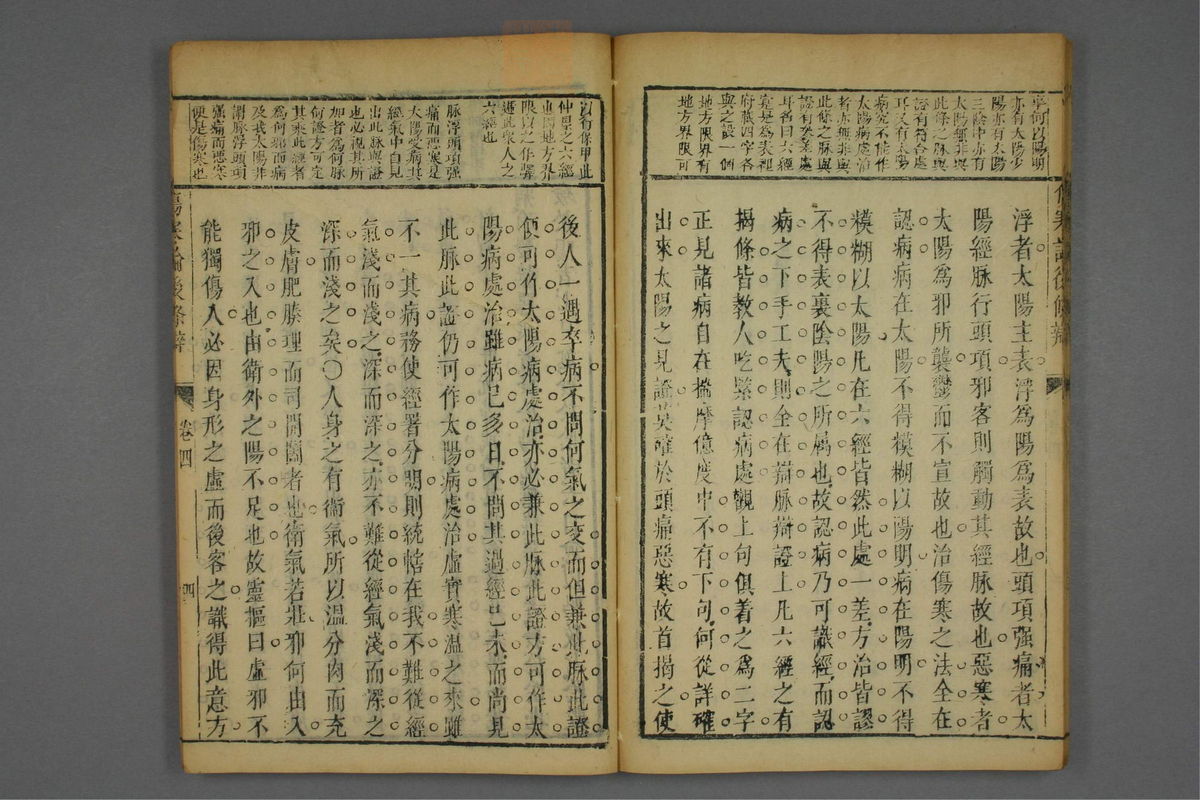 亦有太陽少
陽亦有太陽
三陰中亦有
太陽無非與
此條之脉與
證有符合處
耳又有太陽
病究不能作
太陽病處治
者亦無非與
此條之脉與
證有參差處
耳名曰六經
寔是爲表裡
府藏四字各
與之設一個
地方界限有
地方界限可
浮者太陽主表浮爲陽爲表故也頭項强痛者太
陽經脉行頭項邪客則觸動其經脉故也惡寒者
太陽爲邪所襲鬱而不宣故也治傷寒之法全在
認病病在太陽不得糢糊以陽明病在陽明不得
糢糊以太陽凡在六經皆然此處一差方治皆謬
不得表裏陰陽之所属也故認病乃可識經而認
病之下手工夫則全在辯脉辯證上凡六經之有
揭條皆教人吃緊認病處觀上句俱着之爲二字
正見諸病自在揣摩億度中不有下句何從詳確
出來太陽之見證莫確於頭痛惡寒故首揭之使
傷寒論後條辯
卷四
四
仲景之六經
也則地方界
限以之作聲
六經也
脉浮頭項强
痛而惡寒是
太陽受病其
經氣中自見
出此脉與證
也必視其所
加者爲何脉
何證方可定
其乘此經者
爲何邪而病
及我太陽非
謂脉浮頭項
强痛而惡寒
便是傷寒也
後人一遇卒病不問何氣之変而但兼此脉此證
便可作太陽病處治亦必兼此脉此證方可作太
陽病處治雖病已多日不問其過經已未而尚見
此脉此證仍可作太陽病處治虛實寒温之來雖
不一其病務使經署分明則統轄在我不難從經
氣淺而淺之深而深之亦不難從經氣淺而深之
深而淺之矣〇人身之有衛氣所以温分肉而充
皮膚肥腠理而司開闔者也衛氣若壯邪何由入
邪之入也由衛外之陽不足也故靈樞曰虛邪不
能獨傷人必因身形之虛而後客之識得此意方